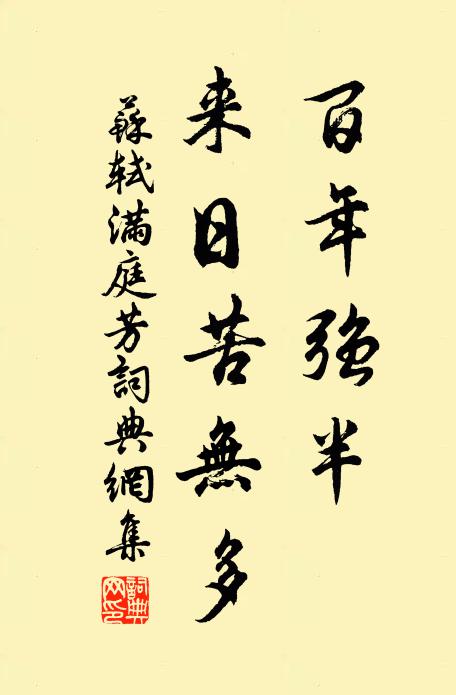 百年强半
来日苦無多
蘇軾滿庭芳詞典網集
詞典網印